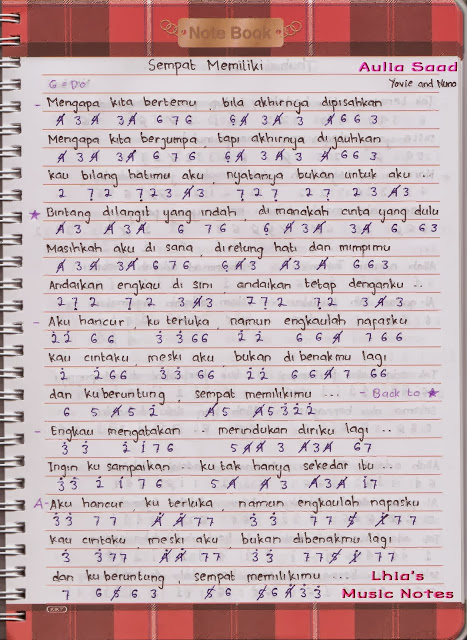 Note Book
Sempat Memiliki Aulia Saad
G = Do Yovie and Nuno
- Mengapa kita bertemu, bila akhirnya dipisahkan
4̸ 3 4̸ 3 4̸ 6 7 6 6̣ 4̸ 3 4̸ 3 4̸ 6 6 3
Mengapa kita berjumpa tapi akhirnya di jauhkan
4̸ 3 4̸ 3 4̸ 6 7 6 6̣ 4̸ 3 4̸ 3 4̸ 6 6 3
kau bilang hatimu aku, nyatanya bukan untuk aku ..
2 7̣ 2 7̣ 2 3 4̸ 3 7̣ 2 7̣ 2 7̣ 2 3 4̸ 3
★ Bintang dilangit yang indah, di manakah cinta yang dulu
4̸ 3 4̸ 3 4̸ 6 7 6 6̣ 4̸ 3 4̸ 3 4̸ 6 6 3
Masihkah aku di sana, direlung hati dan mimpimu
4̸ 3 4̸ 3 4̸ 6 7 6 6̣ 4̸ 3 4̸ 3 4̸ 6 6 3
Andaikan engkau di sini andaikan tetap denganku ..
2 7̣ 2 7̣ 2 3 4̸ 3 2 7̣ 2 7̣ 2 3 4̸ 3
- Aku hancur, ku terluka, namun engkaulah napasku
2̇ 2̇ 6 6 3̇ 3̇ 6 6 2̇ 2̇ 6 6 4̸ 7 6 6
kau cintaku, meski aku bukan di benakmu lagi
2̇ 2̇ 6 6 3̇ 3̇ 6 6 2̇ 2̇ 6 6 4̸ 7 6 6
dan ku beruntung, sempat memilikimu ... - Back to ★
6 5 4̸ 5 2̇ 4̸ 5 4̸ 5 3̇ 2̇ 2̇
- Engkau mengatakan .. merindukan diriku lagi ..
3̇ 3̇ 2̇ 1̇ 7 6 5 4̸ 4̸ 3 4̸ 3 4̸ 6 7
Ingin ku sampaikan ku tak hanya sekedar itu ...
3̇ 3̇ 2̇ 1̇ 7 6 5 4̸ 4̸ 3 4̸ 3 4̸ 1̇ 7
A- Aku hancur, ku terluka, namun engkaulah napasku
3̇ 3̇ 7 7 4̸̇ 4̸̇ 7 7 3̇ 3̇ 7 7 5̸ 1̸̇ 7 7
kau cintaku, meski aku, bukan dibenakmu lagi
3̇ 3̇ 7 7 4̸̇ 4̸̇ 7 7 3̇ 3̇ 7 7 5̸ 1̸̇ 7 7
dan ku beruntung, sempat memilikimu ...
7 6 5̸ 6 3 5̸ 6 5̸ 6 4̸̇ 3̇ 3̇
Lhia's
Music Notes